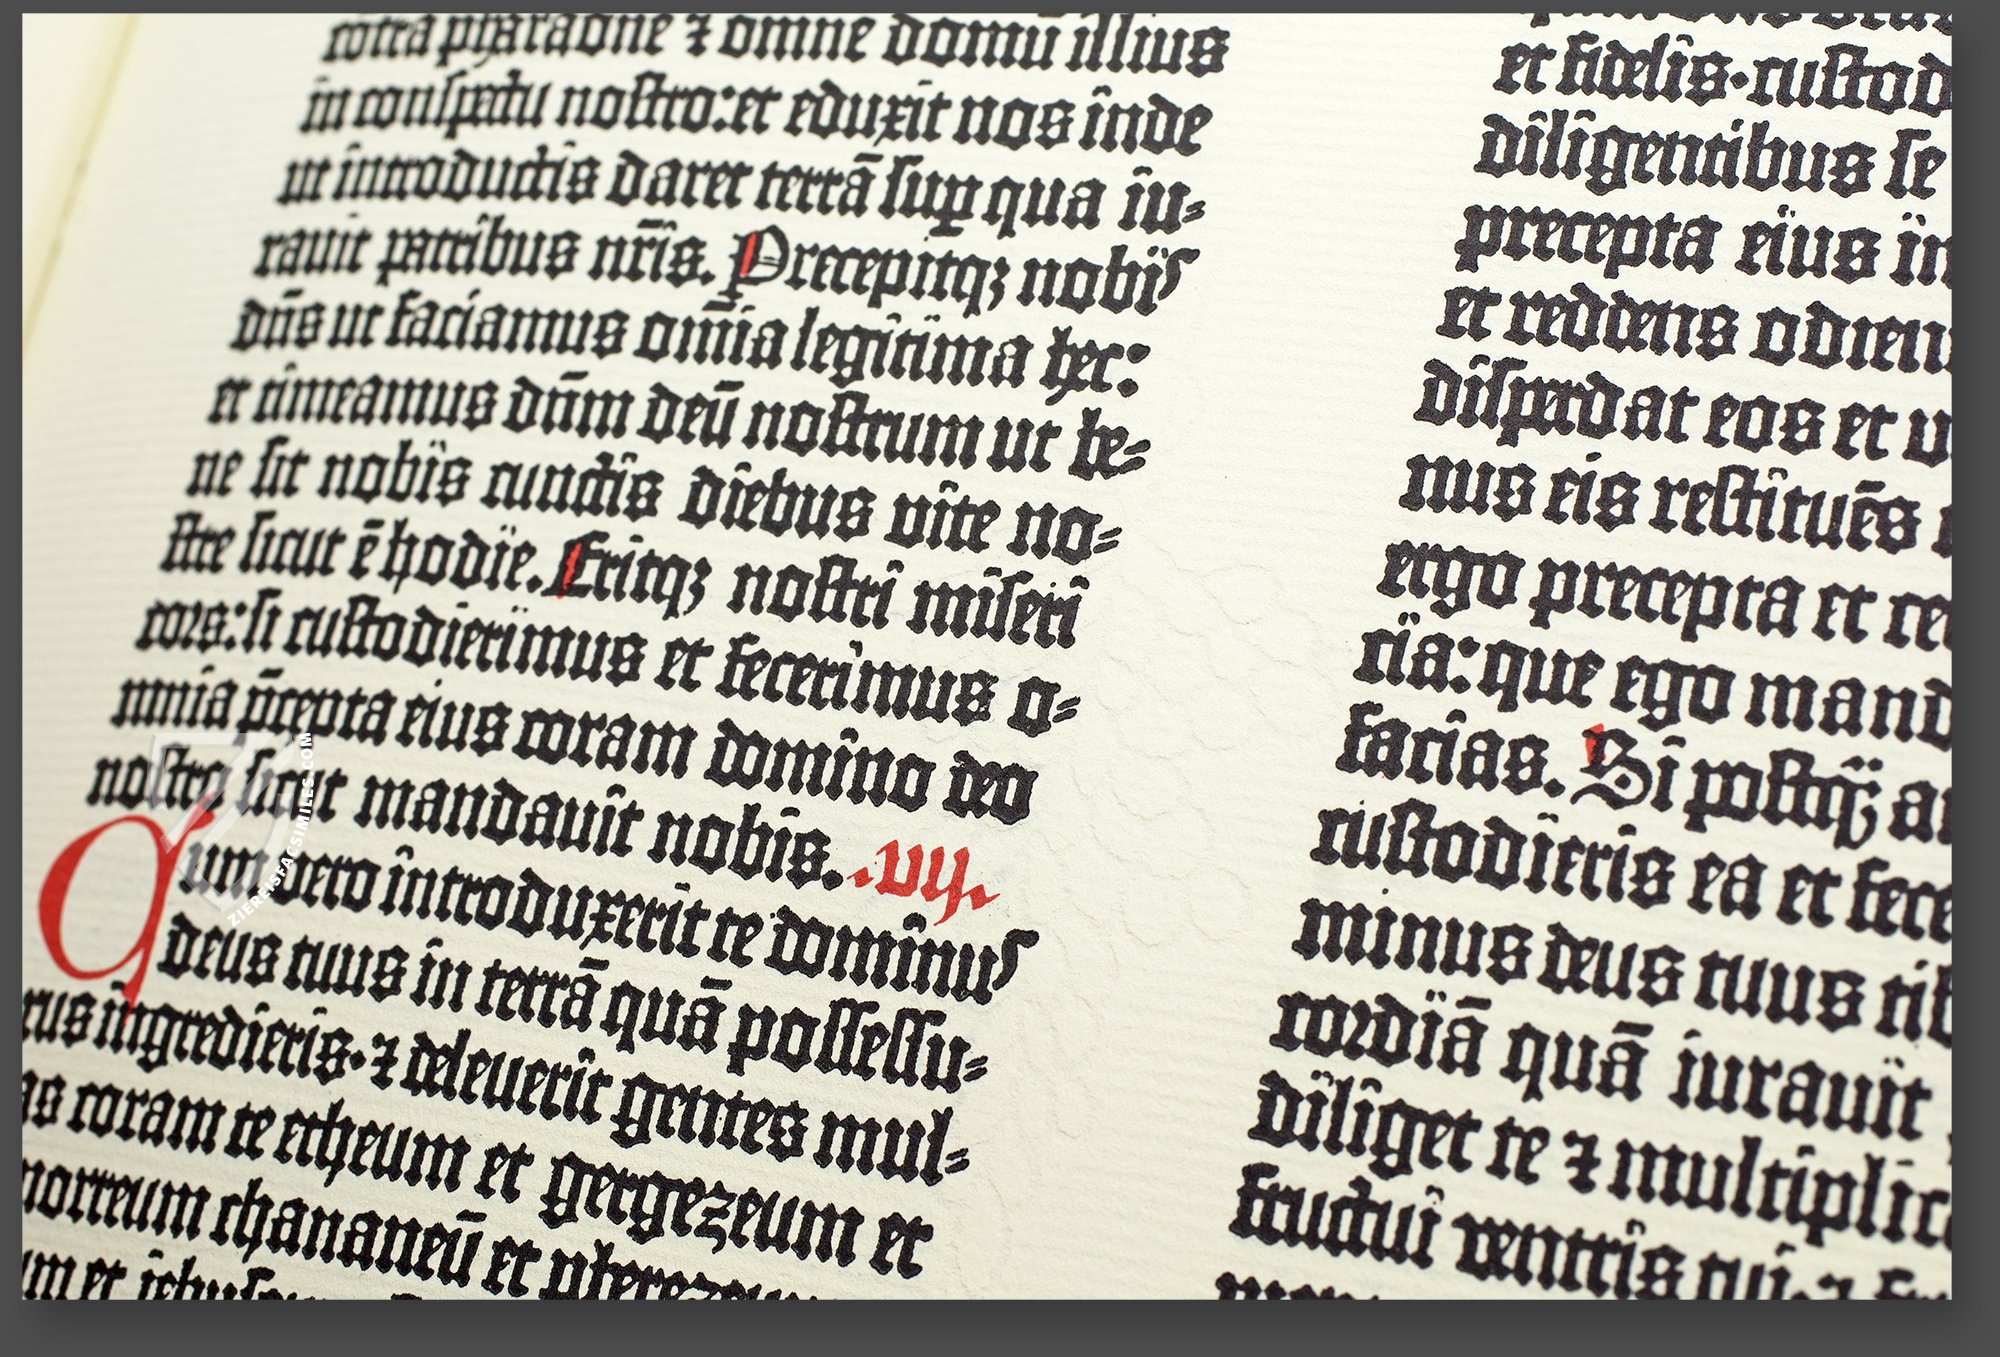 cōtra pharaone ⁊ omne domū illius
in conspectu nostro: et eduxit nos inde
ut introductis daret terrā sup qua iu-
rauit patribus nr̄is. Precepitqꝫ nobis
dn̄s ut faciamus om̄ia legitima hec:
et timeamus dn̄m deū nostrum ut be-
ne sit nobis cunctis diebus vite no-
stre sicut ē hodie. Eritqꝫ nostri miseri
cors: si custodierimus et fecerimus o-
mnia p̄cepta eius coram domino deo
nostro sicut mandauit nobis. .vij.
Cum vero introduxerit te dominus
deus tuus in terrā quā possessu-
rus ingredieris· ⁊ deleuerit gentes mul-
as coram te etheum et gergezeum et
morreum chananeū et pherezeum
um et iebuseum
et fidelis· custod
diligentibus se
precepta eius in
et reddens odien
disperdat eos et u
nus eis restituēs
ergo precepta et ce
cia: que ego mand
facias. Si postqꝫ au
custodieris ea et fece
minus deus tuus tib
cordiā quā iurauit
diliget te ⁊ multiplic
fructui ventris tui· ⁊ fr
ZIEREISFACSIMILES.COM